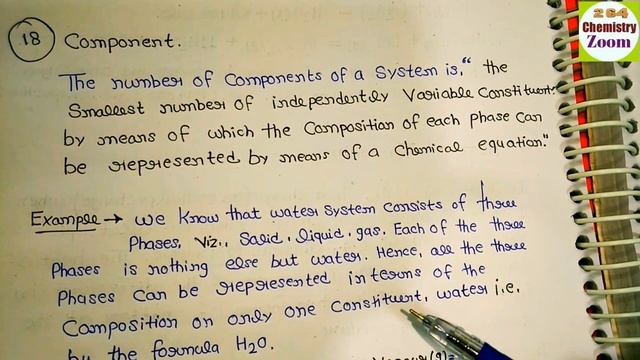 264
Chemistry
Zoom
18 Component.
The number of Components of a System is, "the
Smallest number of independently Variable Constituents
by means of which the Composition of each phase can
be represented by means of a chemical equation."
Example → we know that water system consists of three
Phases, Viz., Solid, liquid, gas. Each of the three
Phases is nothing else but water. Hence, all the three
Phases can be represented in terms of the
Composition on only one Constituent, water i.e.
by the formula H2O.